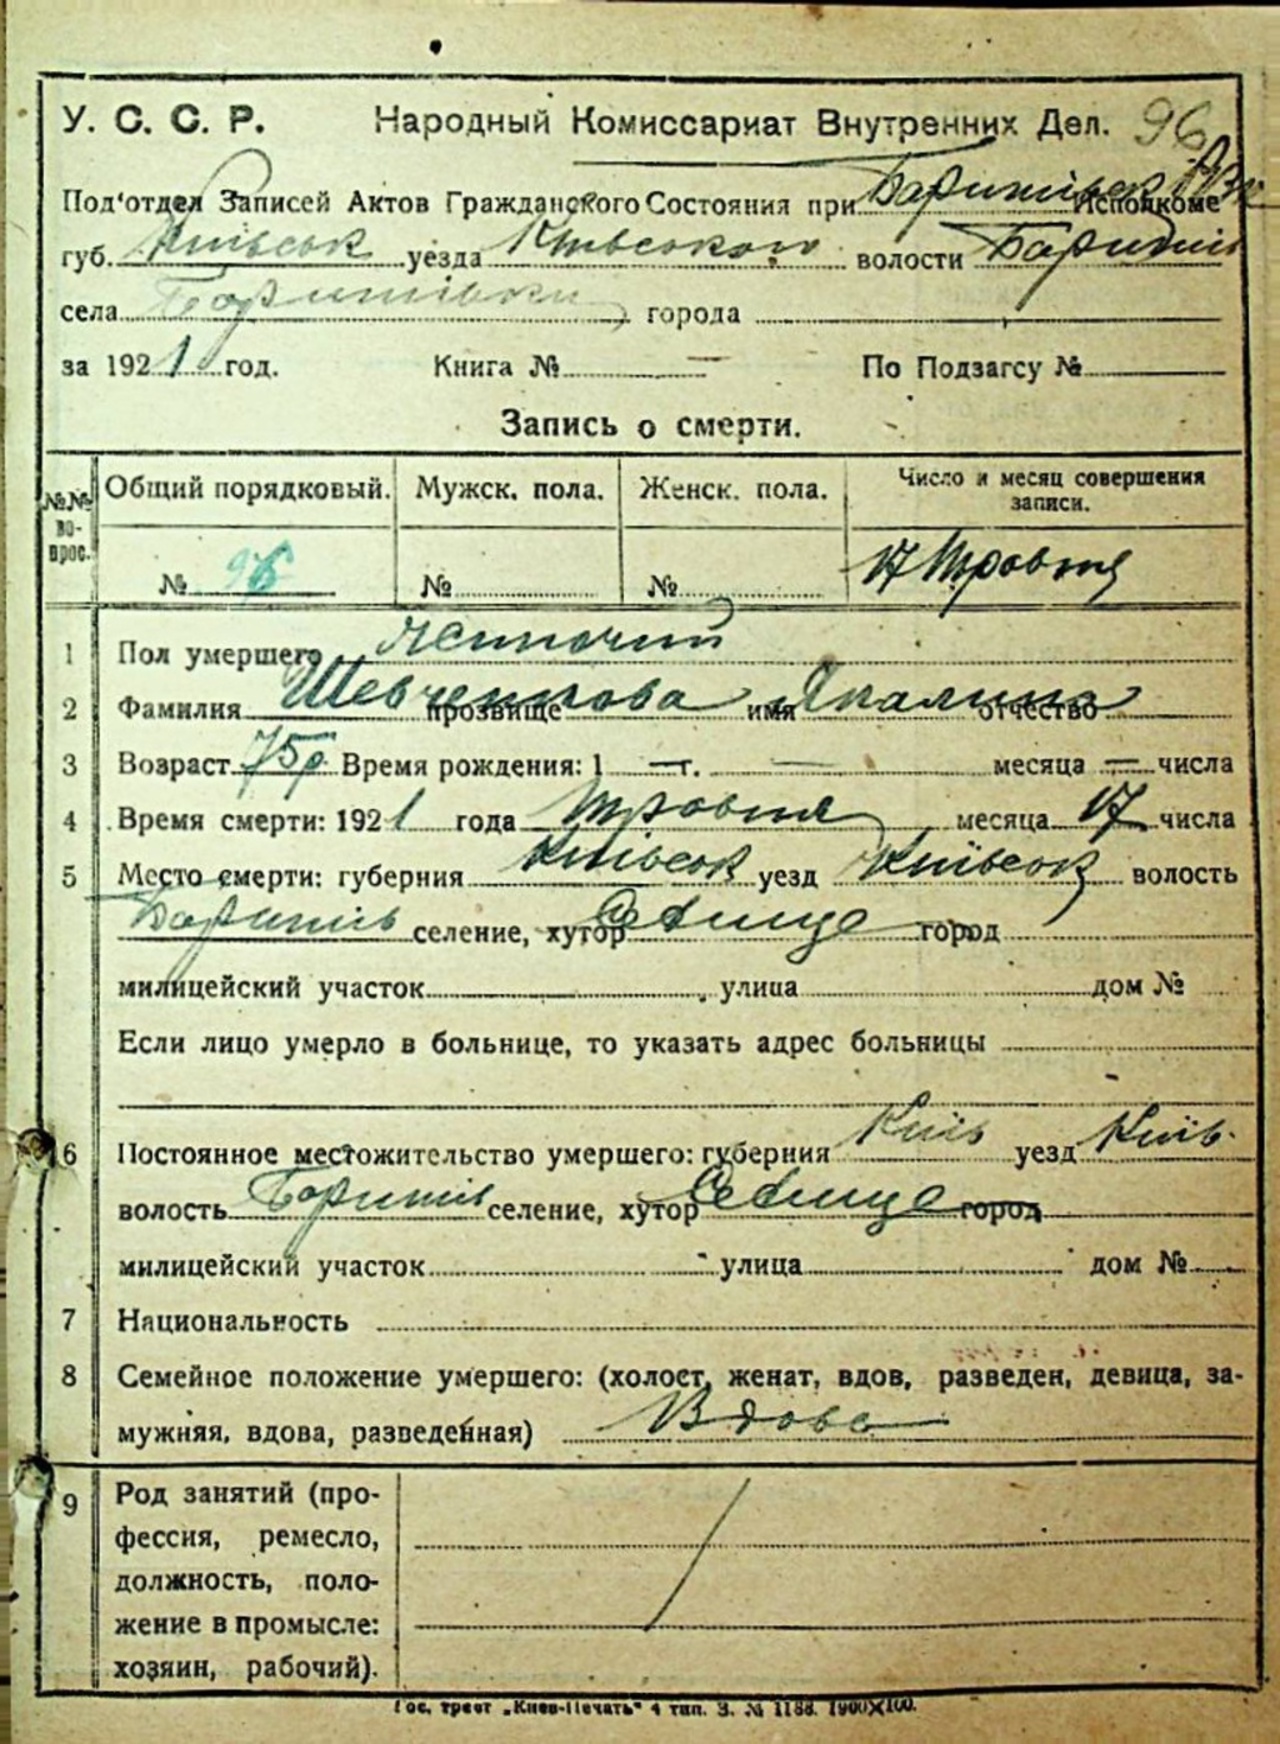 У. С. С. Р. Народный Комиссариат Внутренних Дел. 96
Под'отдел Записей Актов Гражданского Состояния при Исполкоме
губ. Київськ уезда Київського волости Баришів
села Баришівки города
за 1921 год. Книга № — По Подзагсу №
Запись о смерти.
№№ вопрос. Общий порядковый. Мужск. пола. Женск. пола. Число и месяц совершения записи.
№ 96 № № 17 Травня
1 Пол умершего жіночий
2 Фамилия Шевченкова прозвище имя отчество
3 Возраст 75р Время рождения: 1 — г. — месяца — числа
4 Время смерти: 1921 года Травня месяца 17 числа
5 Место смерти: губерния Київськ уезд Київськ волость
Баришів селение, хутор Селище город
милицейский участок улица дом №
Если лицо умерло в больнице, то указать адрес больницы
6 Постоянное местожительство умершего: губерния Київ уезд Київ.
волость Баришів селение, хутор Селище город
милицейский участок улица дом №
7 Национальность
8 Семейное положение умершего: (холост, женат, вдов, разведен, девица, за-
мужняя, вдова, разведенная) Вдова
9 Род занятий (про-
фессия, ремесло,
должность, поло-
жение в промысле:
хозяин, рабочий).
Гос. трест „Киев-Печать“ 4 тип. З. № 1188. 1900X100.